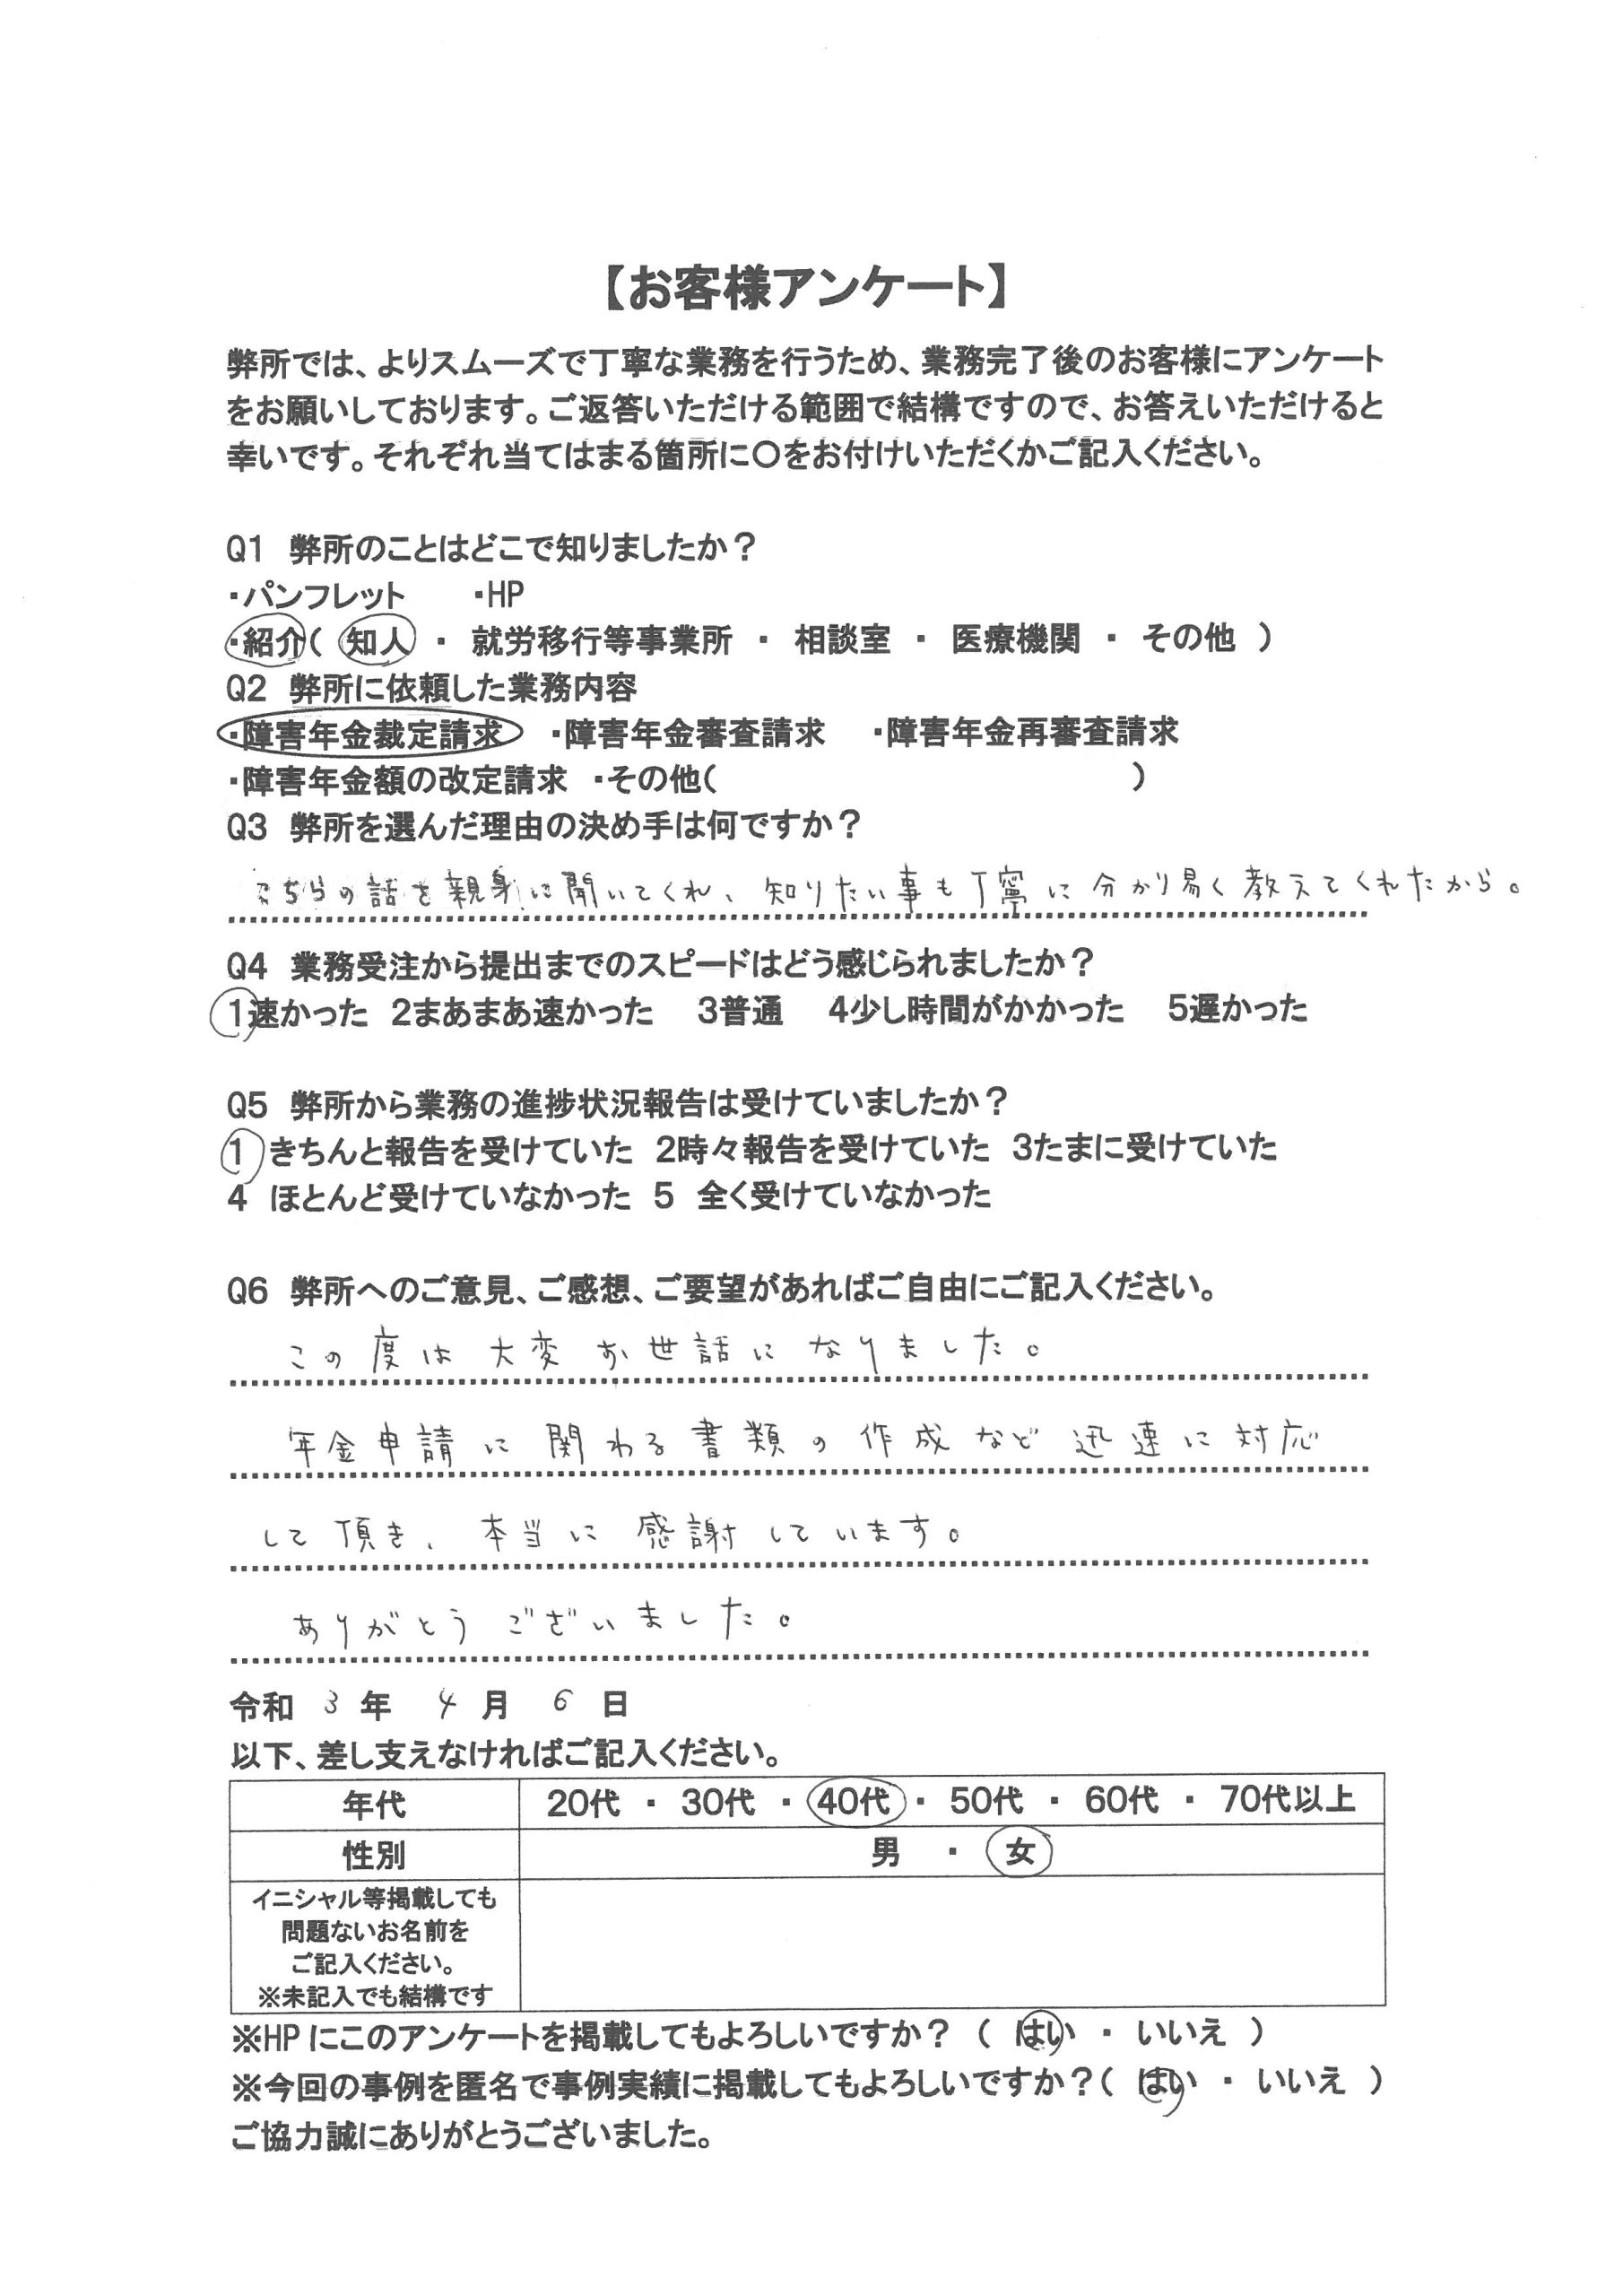 【お客様アンケート】
弊所では、よりスムーズで丁寧な業務を行うため、業務完了後のお客様にアンケート
をお願いしております。ご返答いただける範囲で結構ですので、お答えいただけると
幸いです。それぞれ当てはまる箇所に〇をお付けいただくかご記入ください。
Q1 弊所のことはどこで知りましたか？
・パンフレット ・HP
・紹介（ 知人 ・ 就労移行等事業所 ・ 相談室 ・ 医療機関 ・ その他 ）
Q2 弊所に依頼した業務内容
・障害年金裁定請求 ・障害年金審査請求 ・障害年金再審査請求
・障害年金額の改定請求 ・その他（ ）
Q3 弊所を選んだ理由の決め手は何ですか？
こちらの話を親身に聞いてくれ、知りたい事も丁寧に分かり易く教えてくれたから。
Q4 業務受注から提出までのスピードはどう感じられましたか？
1速かった 2まあまあ速かった 3普通 4少し時間がかかった 5遅かった
Q5 弊所から業務の進捗状況報告は受けていましたか？
1 きちんと報告を受けていた 2時々報告を受けていた 3たまに受けていた
4 ほとんど受けていなかった 5 全く受けていなかった
Q6 弊所へのご意見、ご感想、ご要望があればご自由にご記入ください。
この度は大変お世話になりました。
年金申請に関わる書類の作成など迅速に対応
して頂き、本当に感謝しています。
ありがとうございました。
令和 3 年 4 月 6 日
以下、差し支えなければご記入ください。
年代 20代 ・ 30代 ・ 40代 ・ 50代 ・ 60代 ・ 70代以上
性別 男 ・ 女
イニシャル等掲載しても
問題ないお名前を
ご記入ください。
※未記入でも結構です
※HPにこのアンケートを掲載してもよろしいですか？（ はい ・ いいえ ）
※今回の事例を匿名で事例実績に掲載してもよろしいですか？（ はい ・ いいえ ）
ご協力誠にありがとうございました。